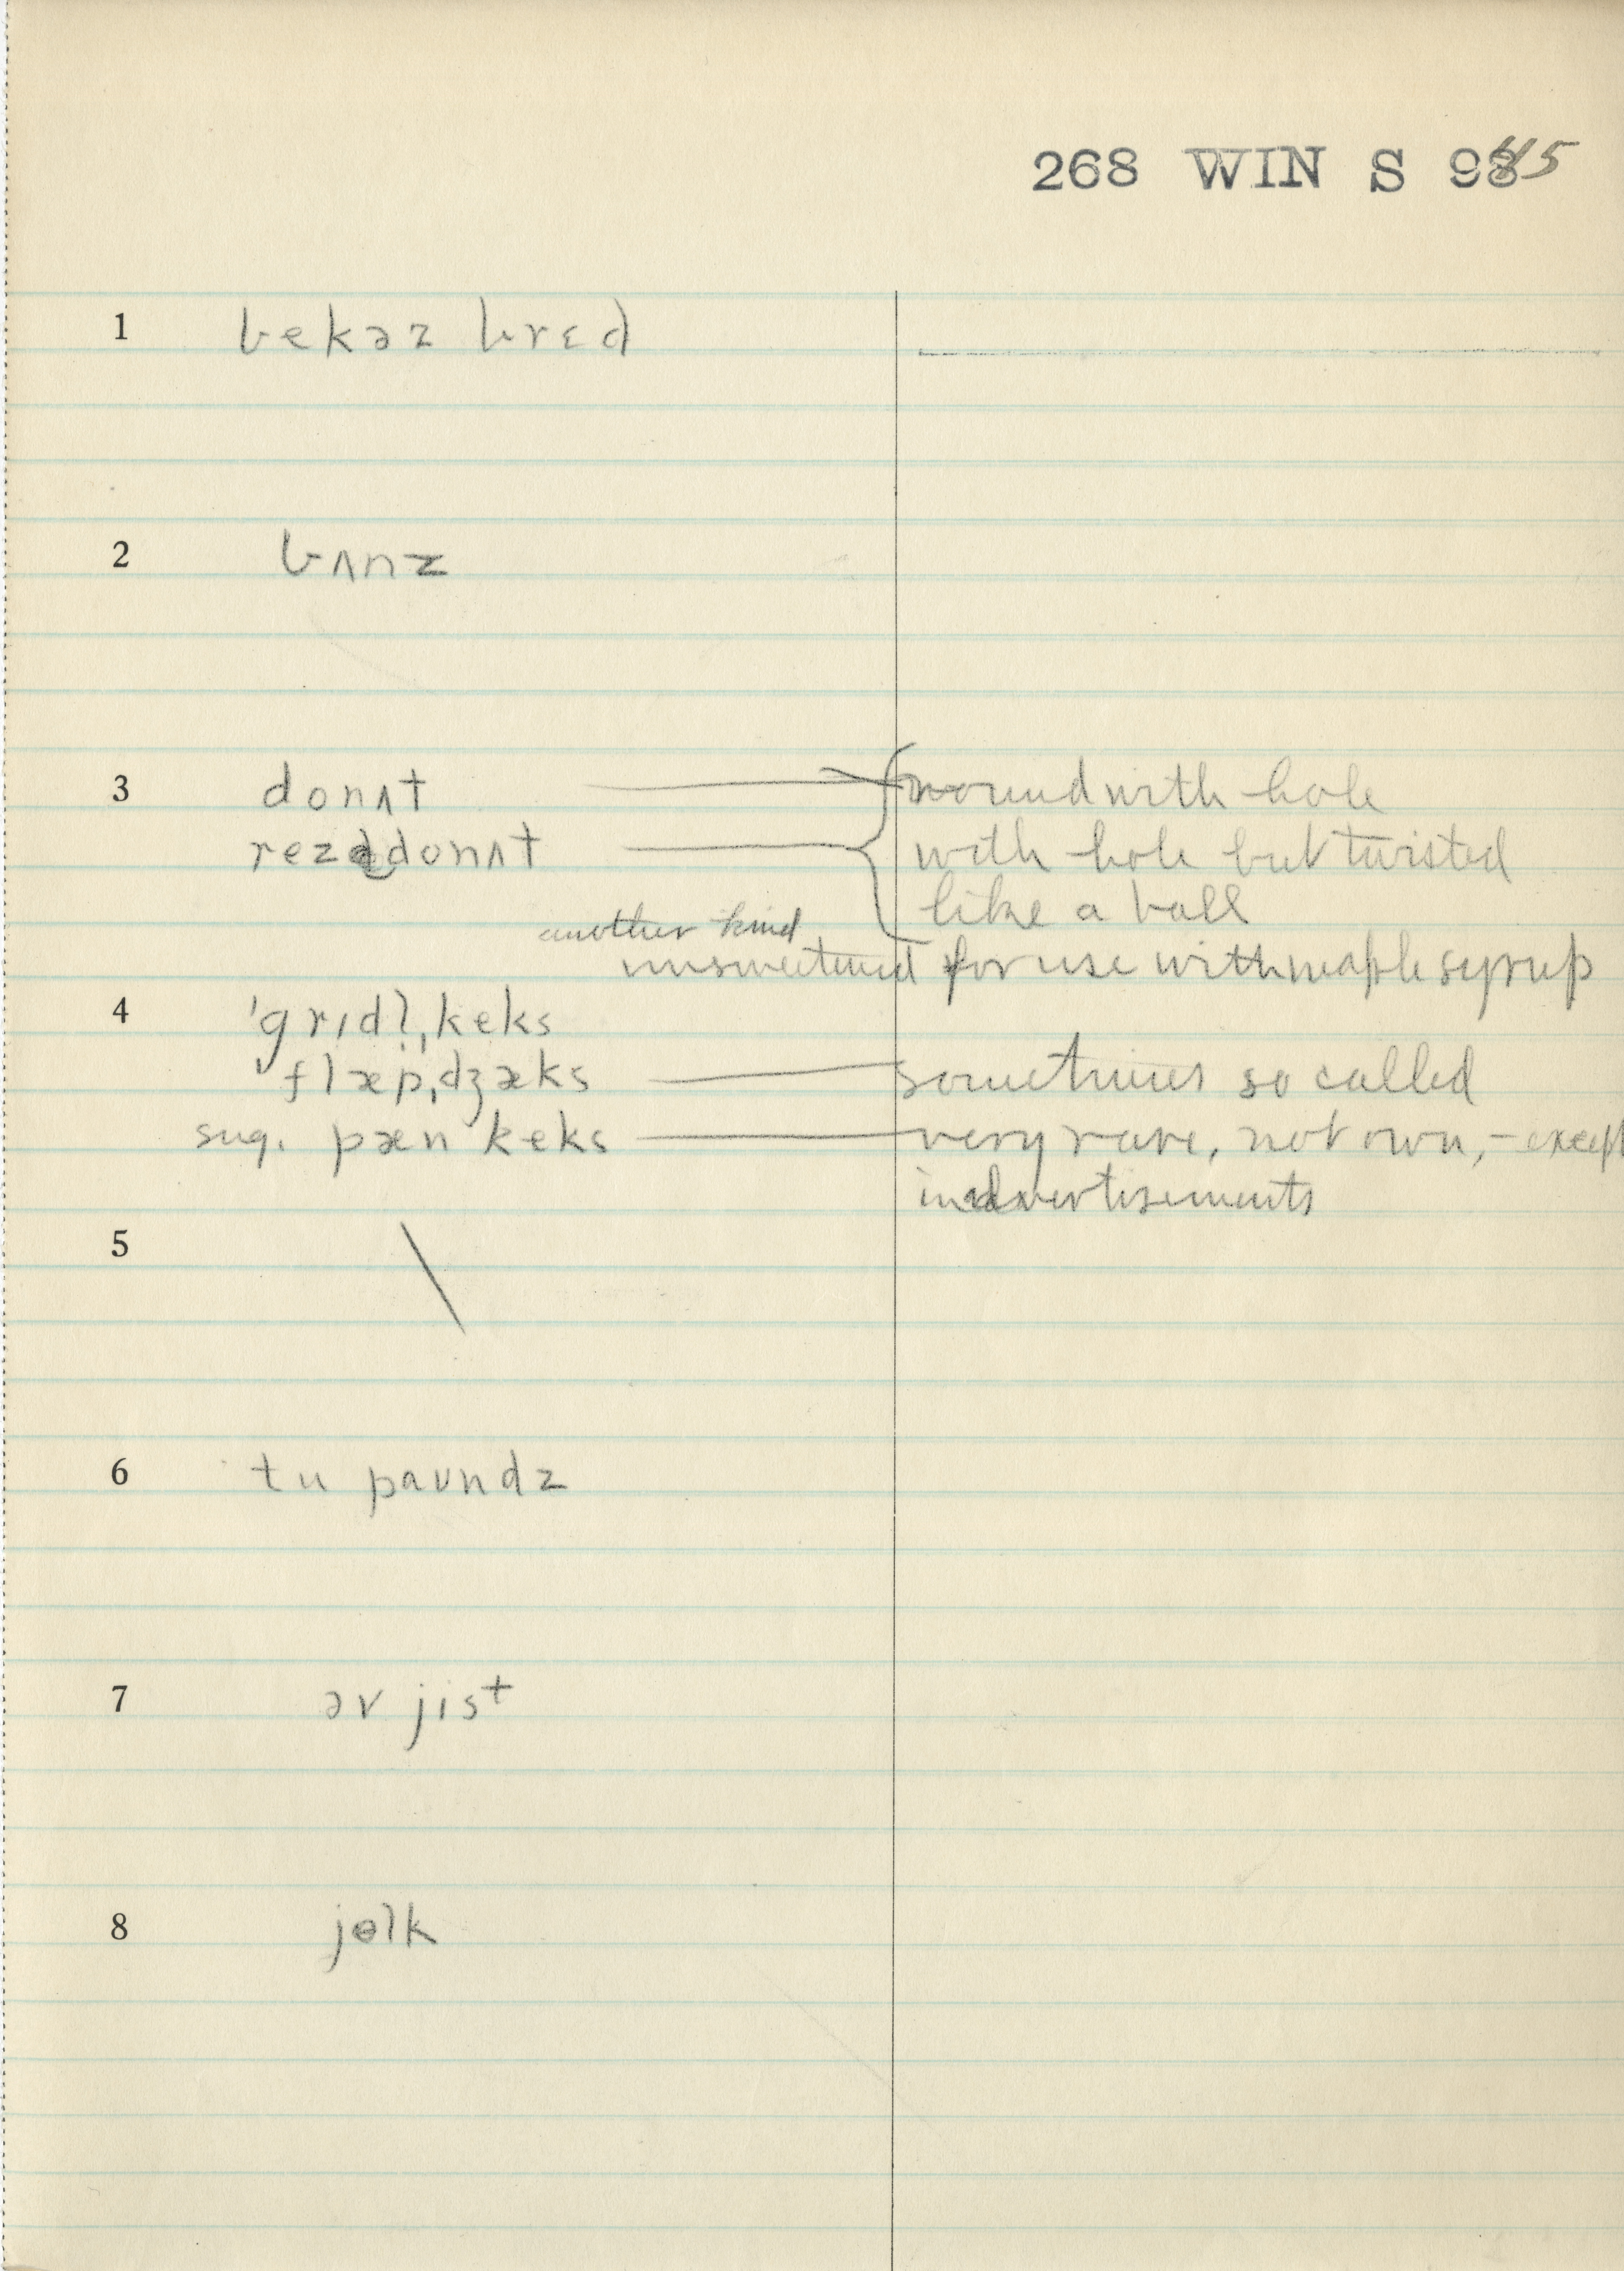 268 WIN S 9845
1 bekəz brɛd
2 bʌnz
3 donʌt round with hole
rezddonʌt with hole but twisted
like a ball
another kind
unsweetened for use with maple syrup
4 ˈgrɪdl̩ˌkeks
ˈflæpˌdʒæks sometimes so called
sug. pæn keks very rare, not own, – except
in advertisements
5 \
6 tu paʊndz
7 əv jist
8 jolk